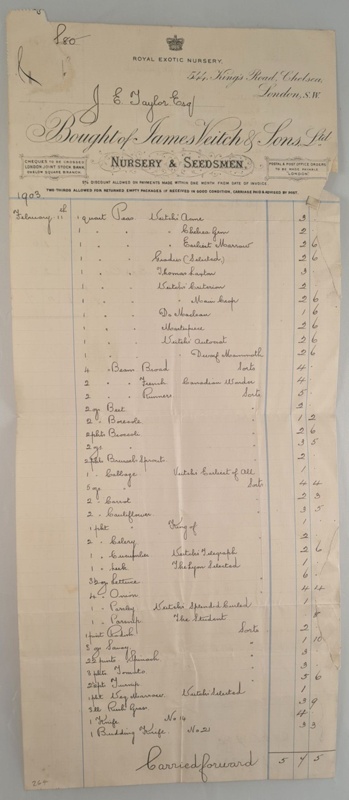 £80
ROYAL EXOTIC NURSERY.
544, King's Road, Chelsea,
London, S.W.
J E Taylor Esq
Bought of James Veitch & Sons, Ltd
CHEQUES TO BE CROSSED
LONDON JOINT STOCK BANK
SLOANE SQUARE BRANCH.
NURSERY & SEEDSMEN.
POSTAL & POST OFFICE ORDERS
TO BE MADE PAYABLE
LONDON
5% DISCOUNT ALLOWED ON PAYMENTS MADE WITHIN ONE MONTH FROM DATE OF INVOICE.
TWO THIRDS ALLOWED FOR RETURNED EMPTY PACKAGES IF RECEIVED IN GOOD CONDITION, CARRIAGE PAID & ADVISED BY POST.
1903
February 11th 1 quart Peas Veitch's Acme 3
1 " " Chelsea Gem 2
1 " " " Earliest Marrow 2 6
1 " " Gradus (Selected) 2 6
1 " " Thomas Laxton 3
1 " " Veitch's Criterion 2
1 " " " Main Crop 2 6
1 " " Dr Maclean 1 6
1 " " Masterpiece 2 6
1 " " Veitch's Autocrat 2 6
1 " " " Dwarf Mammoth 2 6
4 " Beans Broad Sorts 4
2 " " French Canadian Wonder 4
2 " " Runners Sorts 5
2 oz Beet " 2
2 " Borecole " 1 2
2 pkts Broccoli " 2 6
2 oz " " 3 5
2 pkts Brussels Sprouts " 2
1 " Cabbage Veitch's Earliest of All 1
5 oz " Sorts 4 4
2 " Carrot " 2 3
2 " Cauliflower " 3 5
1 pkt " King of 1
2 " Celery " 2
1 " Cucumber Veitch's Telegraph 2 6
1 " Leek The Lyon Selected 1
Lettuce " 6
4 " Onion " 4 4
1 " Parsley Veitch's Splendid Curled 1
1 " Parsnip The Student 8
1 pint Radish Sorts 2
3 oz Savoy " 1 10
Spinach " 3
3 pkts Tomato " 3
Turnip " 5 6
1 pkt Veg Marrow Veitch's Selected 1
Grass 3 9
1 Knife No 14 4
1 Budding Knife No 21 3 3
Carried forward 5 4 5